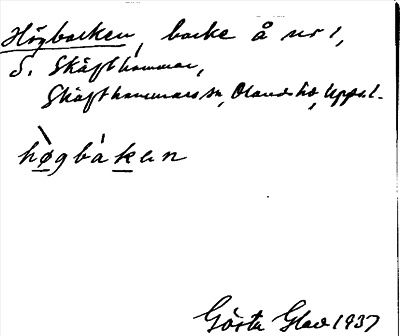 Högbacken, backe å nr 1,
S. Skäfthammar,
Skäfthammars sn, Olands hd, Uppsl.
høgbàken
Gösta Glad 1937